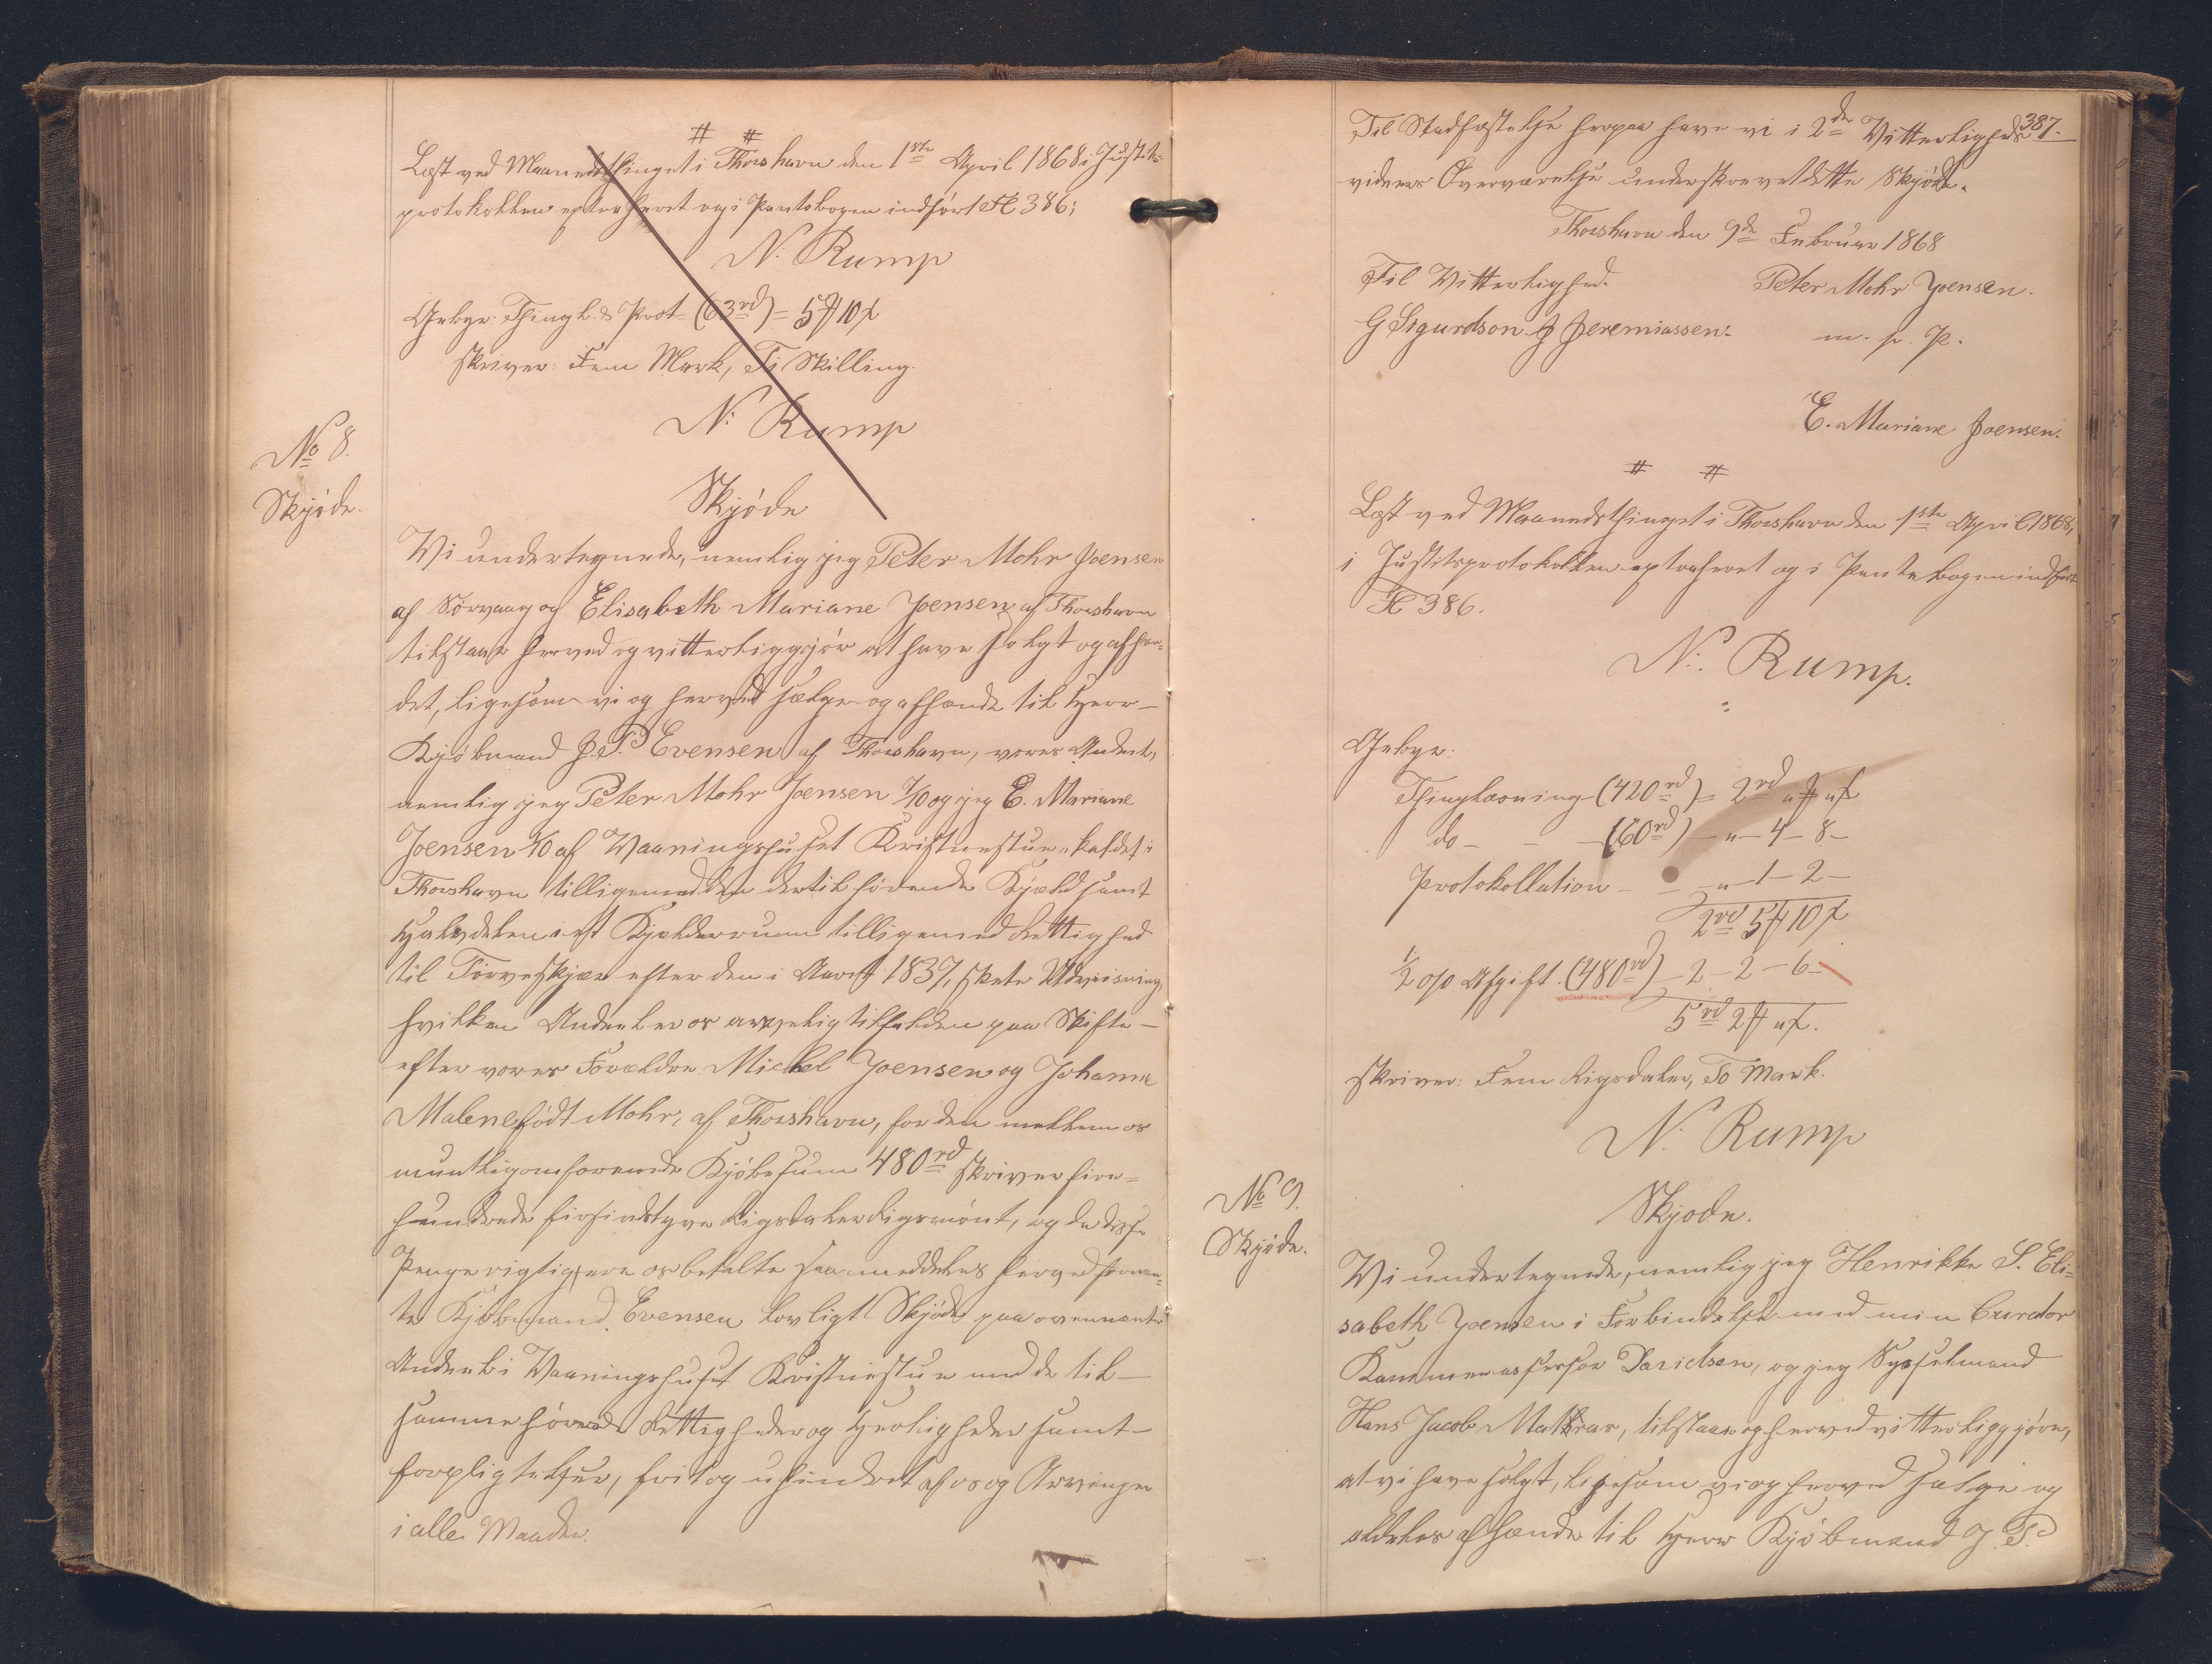 # #
Læst ved Maanedsthinget i Thorshavn den 1ste April 1868 i Justits-
protokollen extraheret og i Pantebogen indført Fol 386;
N. Rump
Gebyr: Thingl. & Prot. (63rd) = 5 ₰ 10 ß
skriver: Fem Mark, Ti Skilling.
N. Rump
No 8.
Skjøde.
Skjøde
Vi undertegnede, nemlig jeg Peter Mohr Joensen
af Sørvaag og Elisabeth Mariane Joensen af Thorshavn
tilstaar herved og vitterliggjør at have solgt og afhæn-
det, ligesom vi og herved sælge og afhænde til Herr
Kjøbmand J. P. Evensen af Thorshavn, vores Andeel,
nemlig jeg Peter Mohr Joensen 2/10 og jeg E. Mariane
Joensen 1/10 af Vaaningshuset Kristinestue kaldet i
Thorshavn tilligemed den dertil hørende Kjæld samt
Halvdelen i et Kjælderrum tilligemed Rettighed
til Tørveskjær efter den i Aaret 1837, skete Udviisning,
hvilken Andeel er os arvelig tilfalden paa Skifte
efter vores Forældre Michel Joensen og Johanne
Malene født Mohr, af Thorshavn, for den mellem os
mundtlig omforenede Kjøbesum 480rd skriver fire-
hundrede firsindstyve Rigsdaler Rigsmønt, og da disse
Penge rigtig ere os betalte saa meddeles herved fornævn-
te Kjøbmand Evensen lovligt Skjøde paa ovennævnte
Andeel i Vaaningshuset Kristinestue med de til
samme hørende Rettigheder og Herligheder samt
forpligtelser, frit og uhindret af os og Arvinger
i alle Maader.
387.
Til Stadfæstelse herpaa have vi i 2de Vitterligheds
vidners Overværelse underskrevet dette Skjøde.
Thorshavn den 9de Februar 1868
Til Vitterlighed. Peter Mohr Joensen.
G Sigurdson. J Jeremiassen. m. f. P.
E. Mariane Joensen.
# #
Læst ved Maanedsthinget i Thorshavn den 1ste April 1868,
i Justitsprotokollen extraheret og i Pantebogen indført
Fol 386.
N. Rump.
Gebyr:
Thinglæsning (420rd) = 2rd " ₰ " ß
do - - - (60rd) - " - 4 - 8 -
Protokollation - - - " - 1 - 2 -
2rd 5 ₰ 10 ß
1/2 o/o Afgift. (480rd) - 2 - 2 - 6 -
5rd 2 ₰ " ß.
skriver: Fem Rigsdaler, To Mark.
N. Rump
No 9.
Skjøde.
Skjøde.
Vi undertegnede, nemlig jeg Henrikke S. Eli-
sabeth Joensen i Forbindelse med min Curator
Kammerassessor Davidsen, og jeg Sysselmand
Hans Jacob Matras, tilstaar og herved vitterliggjøre,
at vi have solgt, ligesom vi og herved sælge og
aldeles afhænde til Herr Kjøbmand J. P.